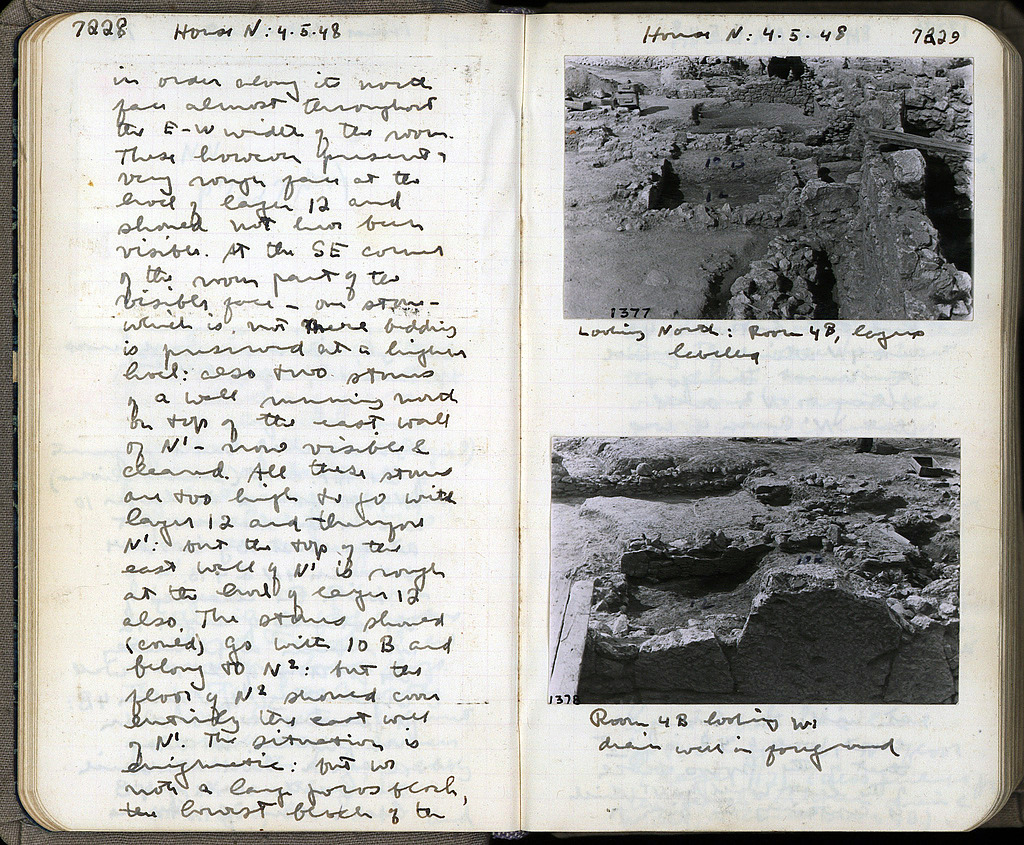 7228 House N: 4.5.48
in order along its north
face almost throughout
the E-W width of the room.
These however present a
very rough face at the
level of layer 12 and
should not have been
visible. At the SE corner
of the room part of the
visible face – one stone –
which is not mere bedding
is preserved at a higher
level: also two stones
of a wall running north
on top of the east wall
of N¹ – now visible &
cleaned. All these stones
are too high to go with
layer 12 and therefore
N¹: but the top of the
east wall of N¹ is rough
at the level of layer 12
also. The stones should
(could) go with 10 B and
belong to N²: but the
floor of N² should cover
entirely the east wall
of N¹. The situation is
enigmatic: but we
note a large poros block,
the lowest block of the
House N: 4.5.48 7229
1377
Looking North: Room 4B, layers
labelled
1378
Room 4B looking W:
drain well in foreground